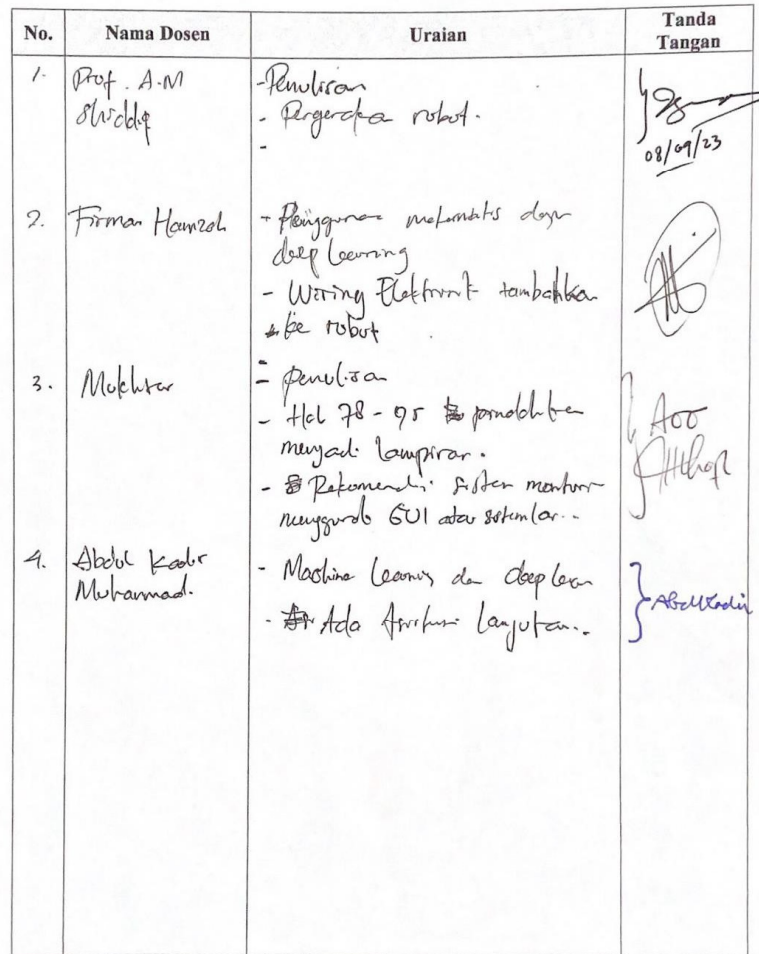 No. Nama Dosen Uraian Tanda Tangan
1. Prof. A.M - Penulisan
Shiddiq - Pergerakan robot.
-
08/09/23
2. Firman Hamzah - Penggunaan matematis dan
deep learning
- Wiring Elektronik tambahkan
ke robot
-
3. Mukhtar - penulisan
- Hal 78 - 95 pindahkan
menjadi lampiran.
- Rekomendasi sistem monitor
GUI atau
4. Abdul Kadir - Machine learning dan deep learn
Muhammad. - Ada lanjutan..
AbdulKadir